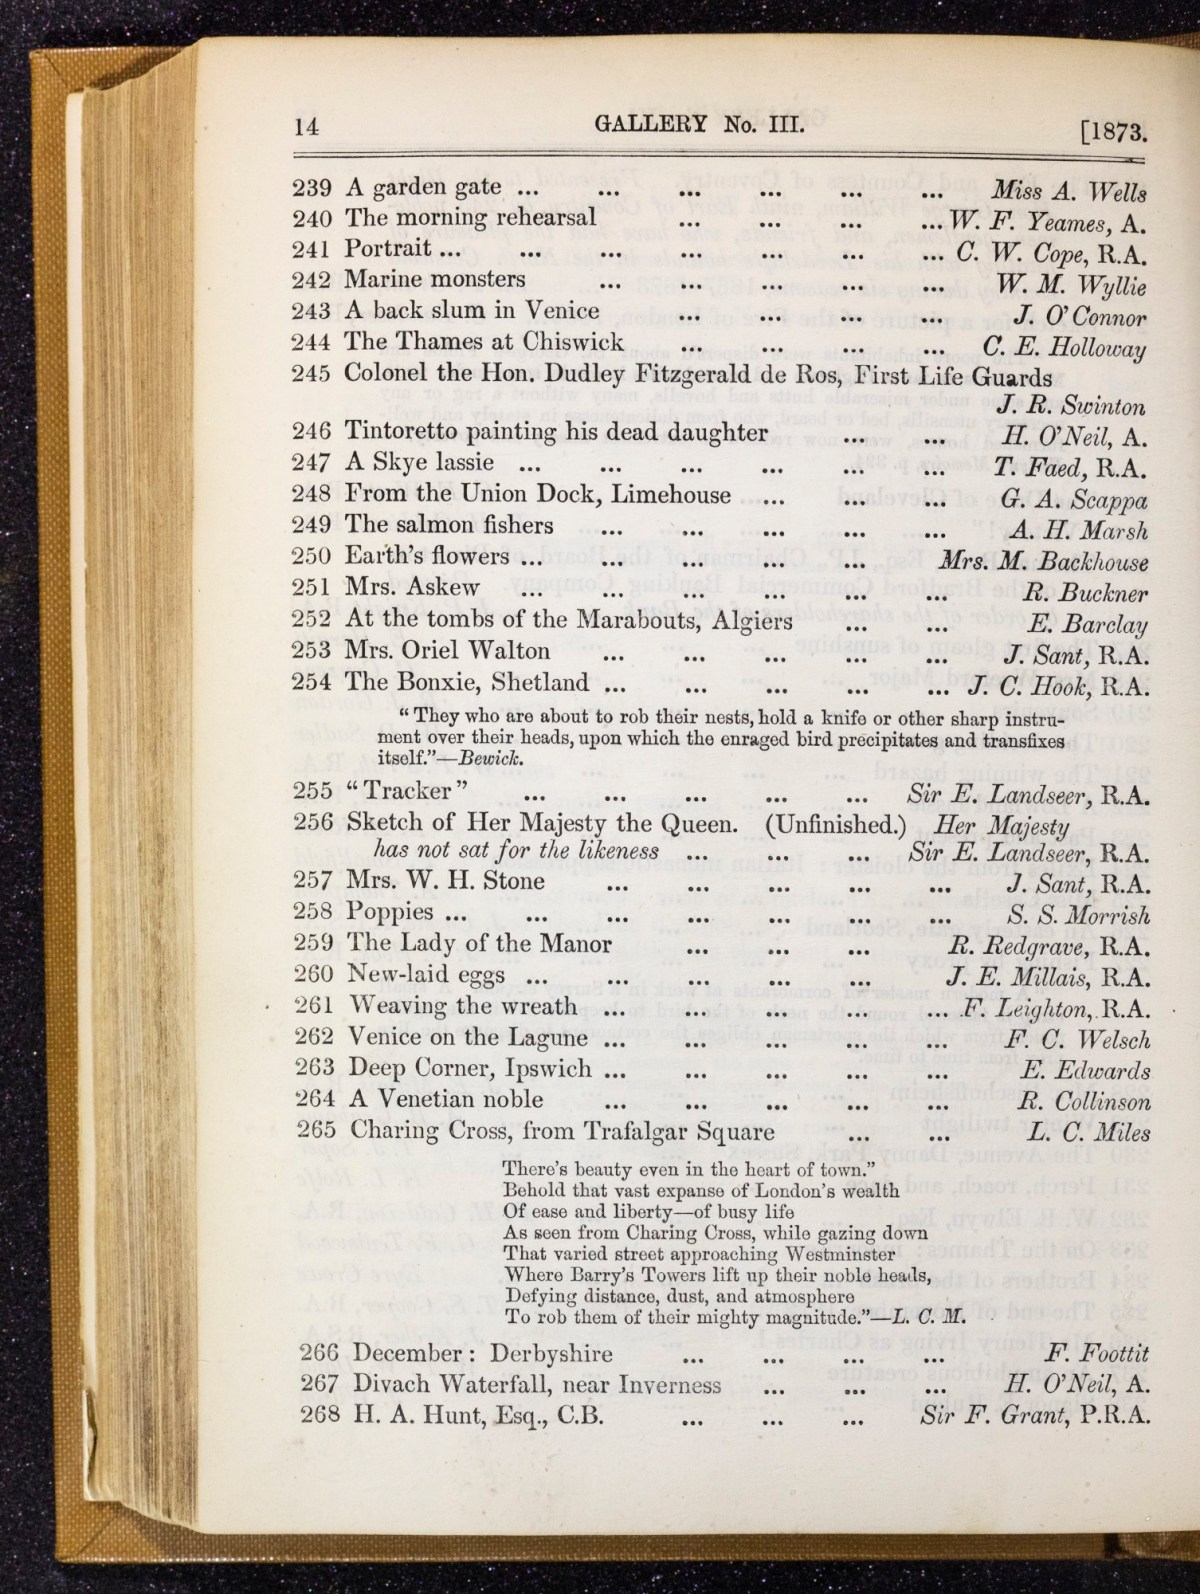 14 GALLERY No. III. [1873.
239 A garden gate ... ... ... ... ... Miss A. Wells
240 The morning rehearsal ... ... ... ... W. F. Yeames, A.
241 Portrait ... ... ... ... ... ... ... C. W. Cope, R.A.
242 Marine monsters ... ... ... ... ... W. M. Wyllie
243 A back slum in Venice ... ... ... ... J. O'Connor
244 The Thames at Chiswick ... ... ... ... C. E. Holloway
245 Colonel the Hon. Dudley Fitzgerald de Ros, First Life Guards
J. R. Swinton
246 Tintoretto painting his dead daughter ... ... H. O'Neil, A.
247 A Skye lassie ... ... ... ... ... ... T. Faed, R.A.
248 From the Union Dock, Limehouse ... ... ... G. A. Scappa
249 The salmon fishers ... ... ... ... ... A. H. Marsh
250 Earth's flowers ... ... ... ... ... Mrs. M. Backhouse
251 Mrs. Askew ... ... ... ... ... ... R. Buckner
252 At the tombs of the Marabouts, Algiers ... ... E. Barclay
253 Mrs. Oriel Walton ... ... ... ... ... J. Sant, R.A.
254 The Bonxie, Shetland ... ... ... ... ... J. C. Hook, R.A.
"They who are about to rob their nests, hold a knife or other sharp instru-
ment over their heads, upon which the enraged bird precipitates and transfixes
itself."—Bewick.
255 "Tracker" ... ... ... ... ... Sir E. Landseer, R.A.
256 Sketch of Her Majesty the Queen. (Unfinished.) Her Majesty
has not sat for the likeness ... ... ... Sir E. Landseer, R.A.
257 Mrs. W. H. Stone ... ... ... ... ... J. Sant, R.A.
258 Poppies ... ... ... ... ... ... ... S. S. Morrish
259 The Lady of the Manor ... ... ... R. Redgrave, R.A.
260 New-laid eggs ... ... ... ... ... J. E. Millais, R.A.
261 Weaving the wreath ... ... ... ... ... F. Leighton, R.A.
262 Venice on the Lagune ... ... ... ... ... F. C. Welsch
263 Deep Corner, Ipswich ... ... ... ... ... E. Edwards
264 A Venetian noble ... ... ... ... ... R. Collinson
265 Charing Cross, from Trafalgar Square ... ... L. C. Miles
There's beauty even in the heart of town."
Behold that vast expanse of London's wealth
Of ease and liberty—of busy life
As seen from Charing Cross, while gazing down
That varied street approaching Westminster
Where Barry's Towers lift up their noble heads,
Defying distance, dust, and atmosphere
To rob them of their mighty magnitude."—L. C. M.
266 December: Derbyshire ... ... ... ... F. Foottit
267 Divach Waterfall, near Inverness ... ... ... H. O'Neil, A.
268 H. A. Hunt, Esq., C.B. ... ... ... Sir F. Grant, P.R.A.